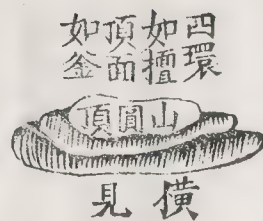 四環
如擅
頂面
如釜
山圓頂
橫見